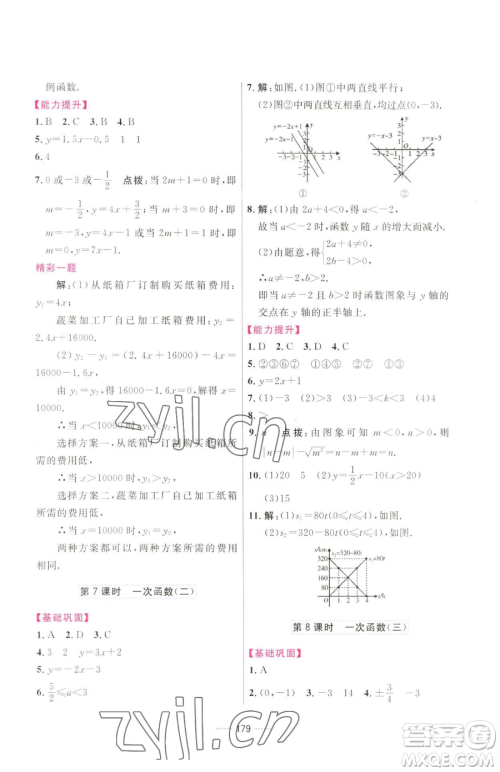 例函数.
【能力提升】
1. B 2. C 3. B 4. B
5. y=1.5x-0.5 1 1
6. 4
7. 0或-3或-1/2 点拨:当2m+1=0时,即
m=-1/2,y=4x+3/2;当m+3=1时,即
m=0,y=7x-1.
精彩一题
解:(1)从纸箱厂订制购买纸箱费用:
y₁=4x;
蔬菜加工厂自己加工纸箱费用:y₂=
2.4x+16000.
(2)y₂-y₁=(2.4x+16000)-4x=
16000-1.6x,
由y₁=y₂,得16000-1.6x=0,
解得x=10000.
∴当x<10000时,y₁<y₂,
选择方案一,从纸箱厂订制购买纸箱所
需的费用低.
∴当x>10000时,y₁>y₂,
选择方案二,蔬菜加工厂自己加工纸箱
所需的费用低.
∴当x=10000时,y₁=y₂,
两种方案都可以,两种方案所需的费用
相同.
第7课时 一次函数(二)
【基础巩固】
1. A 2. D 3. C
4. 3 2 y=3x+2
5. y=-2x-3
6. 5/2≤a<3
7. 解:如图.(1)图①中两直线平行;
(2)图②中两直线互相垂直,均过点(0,-3).
y=-2x+1
y=-2x
y=-x-3
y=x-3
① ②
8. 解:(1)由2a+4<0,得a<-2.
故当a<-2时,函数y随x的增大而减小.
(2)由题意,得{2a+4≠0, 2b-4>0,
∴a≠-2,b>2.
即当a≠-2且b>2时函数图象与y轴的
交点在y轴的正半轴上.
【能力提升】
1. D 2. C 3. D 4. C
5. ②③⑥⑦ ①③ ⑤⑥⑦ ①②③
6. y=2x+1
7. (1)-3 (2)>-3 (3)-3<k<3 (4)4
8. >
9. n 点拨:由图象可知m<0,n>0,则
|n-m|-√m²=n-m-(-m)=n.
10. (1)20 5 (2)y=1/2x-10(x>20)
(3)15
11. 解:(1)s₁=80t(0≤t≤4),如图.
(2)s₂=320-80t(0≤t≤4),如图.
s/km
s₂=320-80t
s₁=80t
320
240
160
80
O 1 2 3 4 t/h
第8课时 一次函数(三)
【基础巩固】
1. A
2. (0,-1) 3. 1 4. ±3/4 -3
179
zyjl.cn